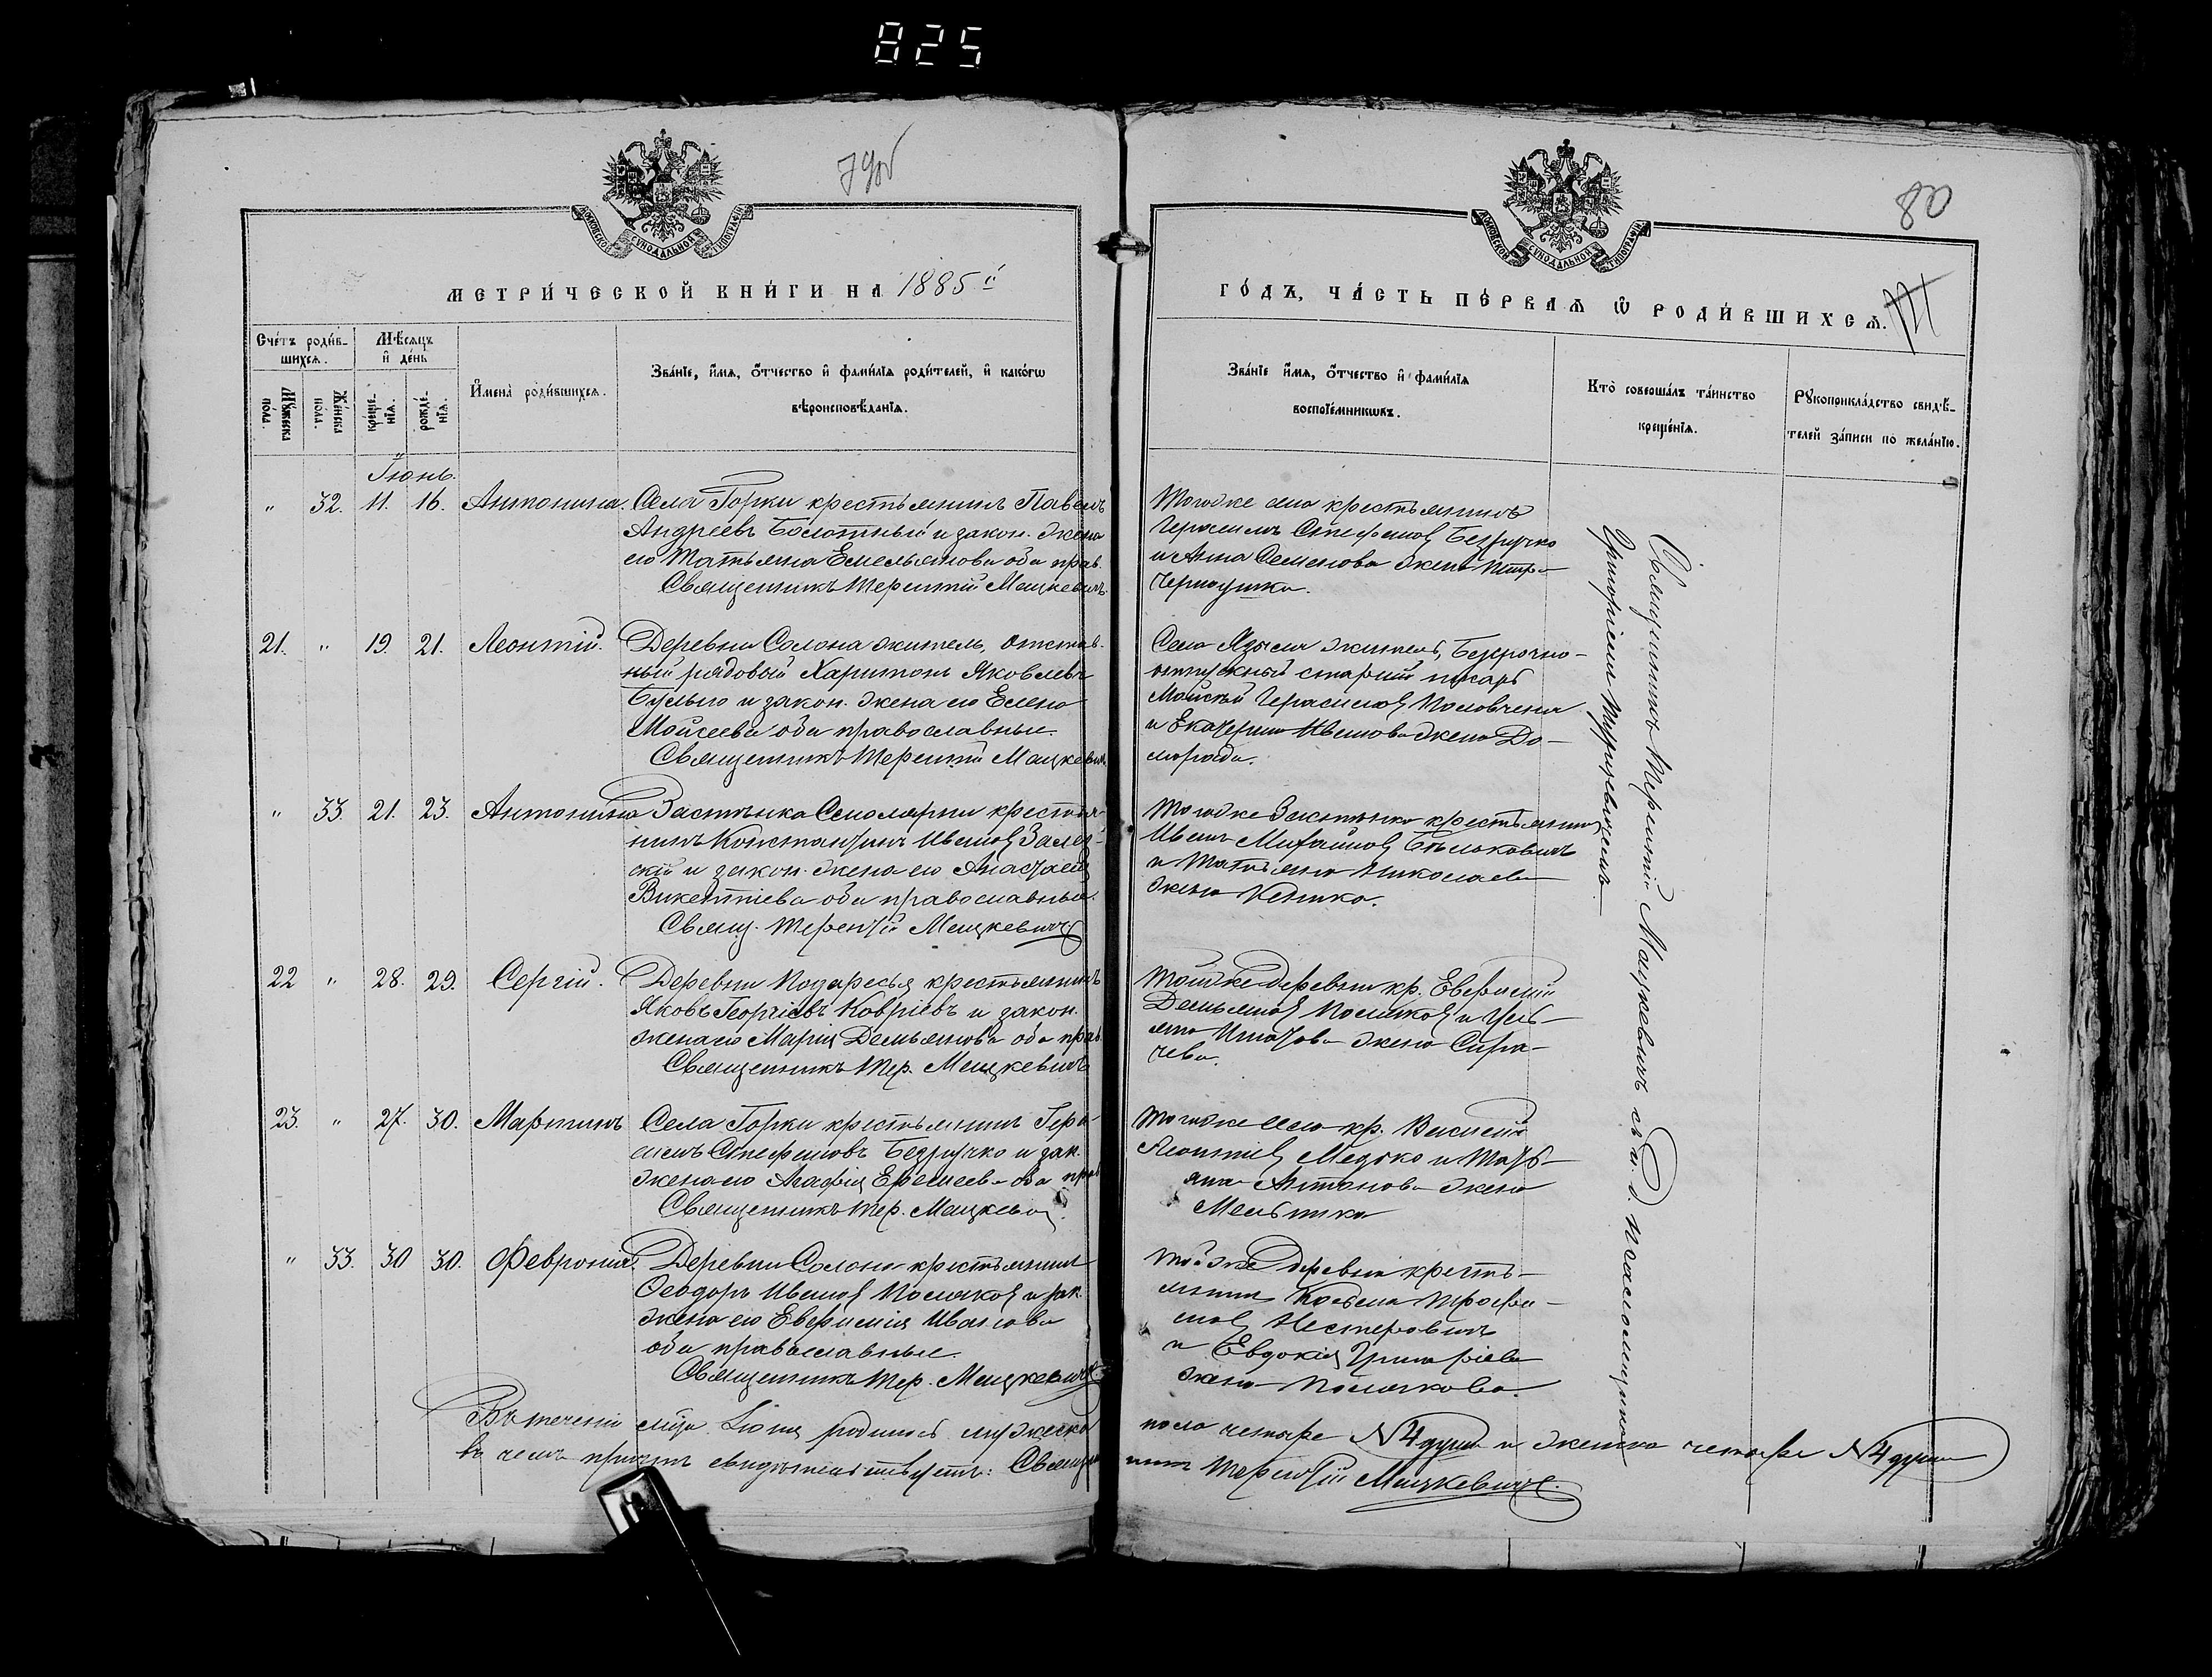 825
79об
80
МОСКОВСКОЙ СѴНОДАЛЬНОЙ ТИПОГРАФІИ
МОСКОВСКОЙ СѴНОДАЛЬНОЙ ТИПОГРАФІИ
МЕТРИ́ЧЕСКОЙ КНИ́ГИ НА 1885й
ГО́ДЪ, ЧА́СТЬ ПЕ́РВАѦ Ѿ РОДИ́ВШИХСѦ.
Сче́тъ роди́в-
шихсѧ.
Мѣ́сѧцъ
и҆ де́нь
Мꙋ́жеска по́ла.
Же́нска по́ла.
креще́-
нїѧ.
рожде́-
нїѧ.
И҆мена̀ роди́вшихсѧ.
Зва́нїе, и҆́мѧ, ѻ҆́тчество и҆ фами́лїѧ роди́телей, и҆ како́гѡ
вѣроисповѣ́данїѧ.
Зва́нїе и҆́мѧ, ѻ҆́тчество и҆ фами́лїѧ
воспрїе́мникѡвъ.
Кто̀ соверша́лъ та́инство
креще́нїѧ.
Рꙋкоприкла́дство свидѣ́-
телей за́писи по жела́нїю.
Іюнь.
" 32. 11. 16. Антонина. Села Горки крестьянинъ Павелъ
Андреевъ Болотный и закон. жена
его Татьяна Емельянова оба прав.
Священникъ Терентій Мацкевичъ.
Тогоже села крестьянинъ
Герасимъ Стефановъ Безручко
и Анна Семенова жена Петра
21. " 19. 21. Леонтій. Деревни Солона житель, отстав-
ный рядовой Харитонъ Яковлевъ
и закон. жена его Елена
Мойсеева оба православные.
Священникъ Терентій Мацкевичъ
Села Языля житель, Безсрочно-
отпускный старшій писарь
Мойсей Герасимовъ Половченя
и Екатерина Иванова жена До-
морада.
" 33. 21. 23. Антонина Застѣнка Смолярни крестья-
нинъ Константинъ Ивановъ Залев-
скій и закон. жена его Анастасія
Викентіева оба православные.
Свящ. Терентій Мацкевичъ
Тогоже Застѣнка крестьянинъ
Иванъ Михайловъ Бѣльковичъ
и Татьяна Николаева
жена
22 " 28. 29. Сергій. Деревни крестьянинъ
Яковъ Георгіевъ Ковріевъ и закон.
жена его Марія Демьянова оба прав.
Священникъ Тер. Мацкевичъ
Тойже деревни кр. Евфимій
Демьяновъ Поляковъ и Уль-
яна Игнатова жена Сира-
чева.
23. " 27. 30. Мартинъ Села Горки крестьянинъ Гера-
симъ Стефановъ Безручко и зак.
жена его Агафія Еремеева оба прав
Священникъ Тер. Мацкевичъ
Тогоже села кр. Василій
Леонтіевъ и Тать-
яна Антонова жена
Мельника
" 33. 30 30. Февронія. Деревни Солона крестьянинъ
Ѳеодоръ Ивановъ Поляковъ и зак.
жена его Евфимія Иванова
оба православные.
Священникъ Тер. Мацкевичъ.
Той же деревни кресть-
янинъ Козьма Трофи-
мовъ Нестеровичъ
и Евдокія Григоріева
жена Полякова.
Священникъ Терентій Мацкевичъ съ и. д. псаломщика
Григоріемъ
Въ теченіи мѣца Іюня родилось мужеска пола четыре №4 души и женска четыре №4 души
въ чемъ причтъ свидѣтельствуетъ: Священникъ Терентій Мацкевичъ.